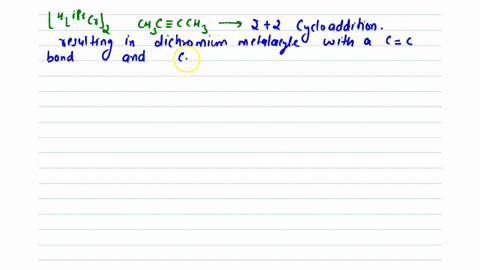 [ᴴL ⁱᴾʳ Cr]₂ CH₃C≡CCH₃ ⟶ 2+2 Cycloaddition.
resulting in dichromium metalacyle with a C=C
bond and C.